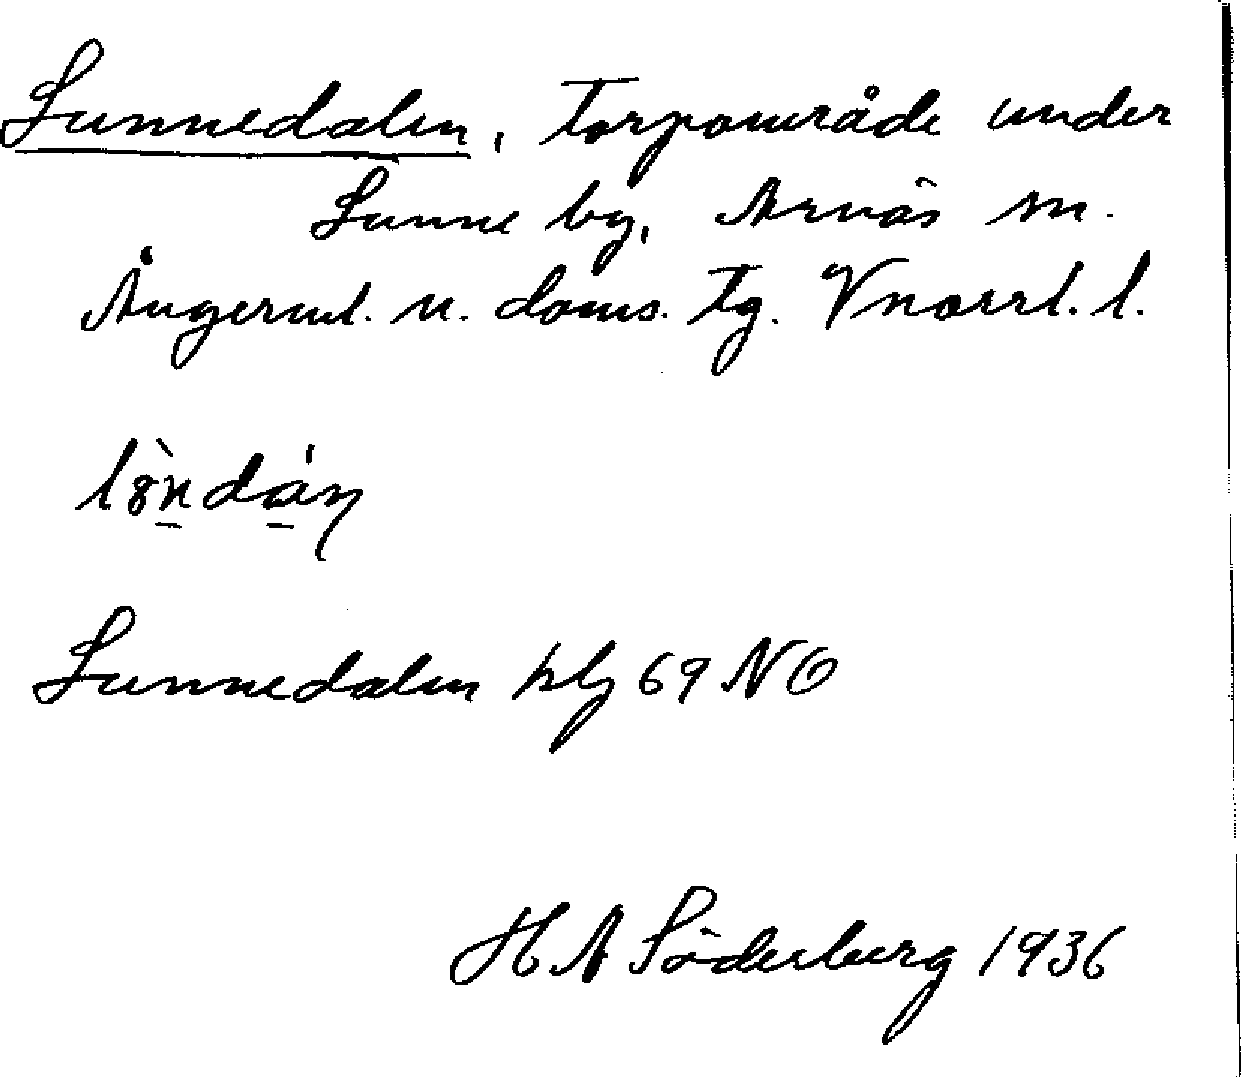 Lunnedalen, torpområde under
Lunne by, Arnäs sn.
Ångerml. n. doms. tg. Vnorrl. l.
Lunnedalen 69 NO
H A Söderberg 1936